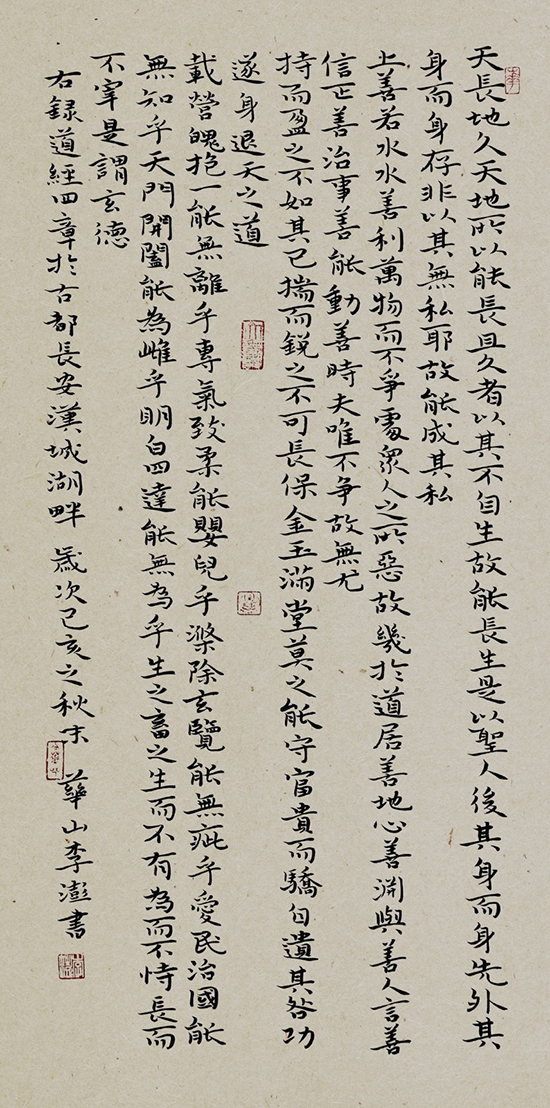 天長地久天地所以能長且久者以其不自生故能長生是以聖人後其身而身先外其
身而身存非以其無私耶故能成其私
上善若水水善利萬物而不爭處衆人之所惡故幾於道居善地心善淵與善人言善
信正善治事善能動善時夫唯不爭故無尤
持而盈之不如其已揣而銳之不可長保金玉滿堂莫之能守富貴而驕自遺其咎功
遂身退天之道
載營魄抱一能無離乎專氣致柔能嬰兒乎滌除玄覽能無疵乎愛民治國能
無知乎天門開闔能為雌乎明白四達能無為乎生之畜之生而不有為而不恃長而
不宰是謂玄德
右録道經四章於古都長安漢城湖畔 歲次己亥之秋末 華山李澎書